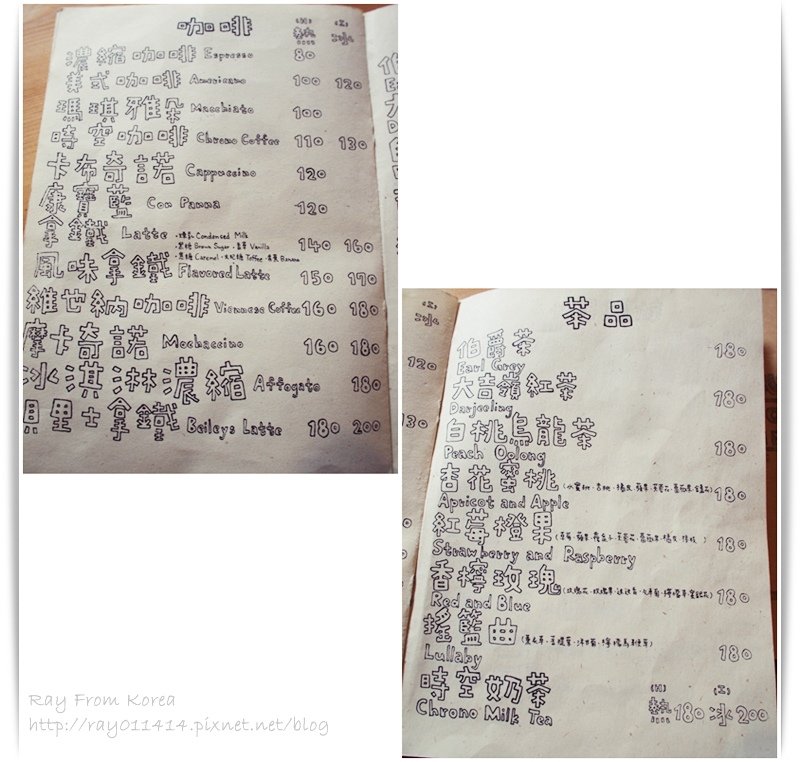 咖啡 (H) 熱 (I) 冰
濃縮咖啡 Espresso 80
美式咖啡 Americano 100 120
瑪琪雅朵 Macchiato 100
時空咖啡 Chrono Coffee 110 130
卡布奇諾 Cappuccino 120
康寶藍 Con Panna 120
拿鐵 Latte 140 160
・煉乳 Condensed Milk
・黑糖 Brown Sugar ・香草 Vanilla
・焦糖 Caramel ・太妃糖 Toffee ・香蕉 Banana
風味拿鐵 Flavored Latte 150 170
維也納咖啡 Viennese Coffee 160 180
摩卡奇諾 Mochaccino 160 180
冰淇淋濃縮 Affogato 180
貝里士拿鐵 Beileys Latte 180 200
(I)
冰
120
130
茶品
伯爵茶 180
Earl Grey
大吉嶺紅茶 180
Darjeeling
白桃烏龍茶 180
Peach Oolong
杏花蜜桃 180
Apricot and Apple
紅莓橙果 180
Strawberry and Raspberry
香檸玫瑰 180
Red and Blue
搖籃曲 180
Lullaby
時空奶茶 (H) 熱 180 (I) 冰 200
Chrono Milk Tea
Ray From Korea
http://ray011414.pixnet.net/blog